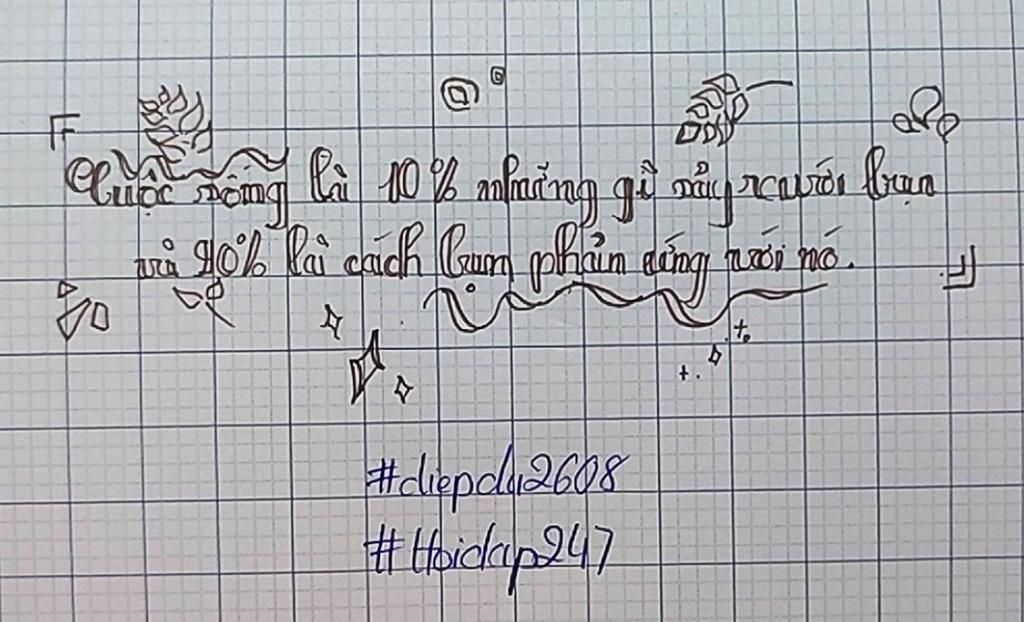 Cuộc sống là 10% những gì xảy ra với bạn
và 90% là cách bạn phản ứng với nó.
#diepda2608
#Hoidap247